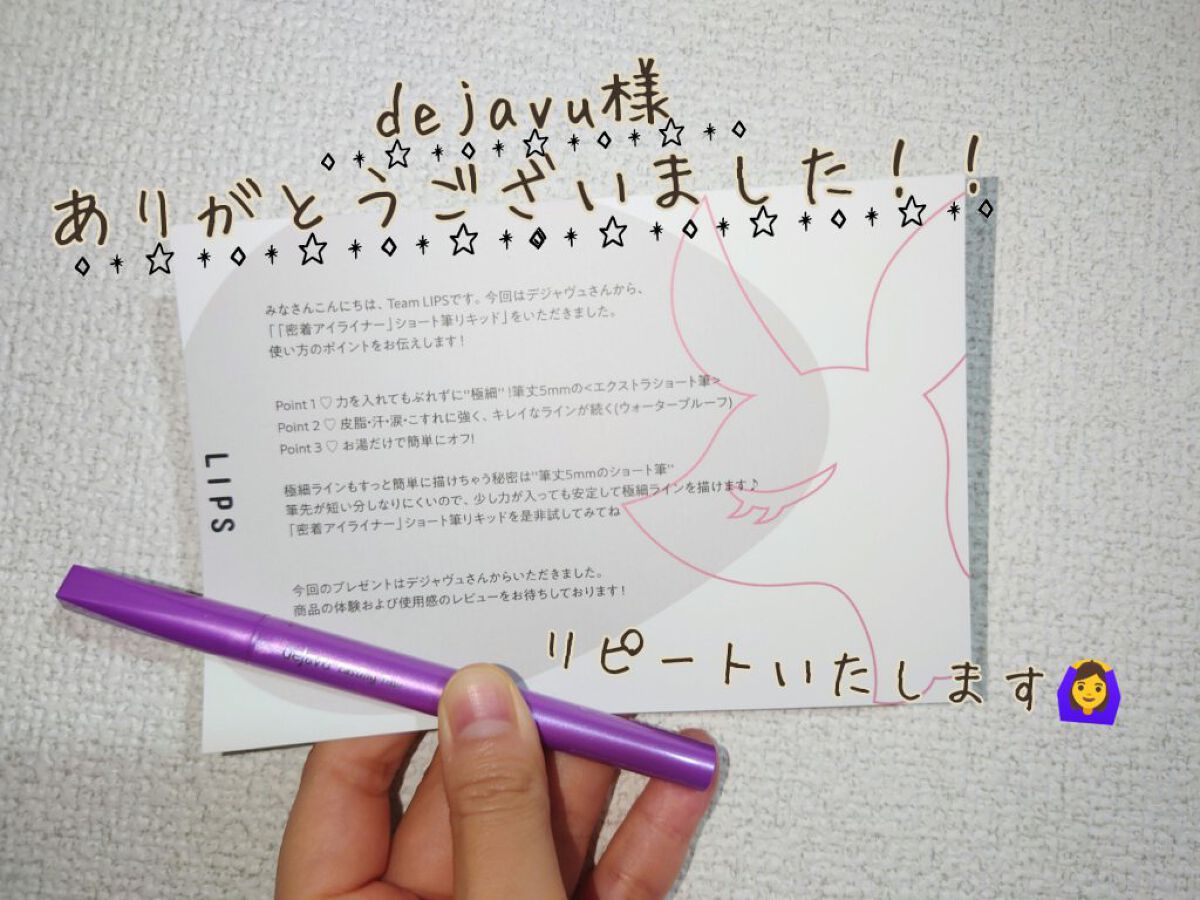 dejavu様
ありがとうございました！！
みなさんこんにちは、Team LIPSです。今回はデジャヴュさんから、
「「密着アイライナー」ショート筆リキッド」をいただきました。
使い方のポイントをお伝えします！
Point 1 ♡ 力を入れてもぶれずに"極細"！筆丈5mmの<エクストラショート筆>
Point 2 ♡ 皮脂・汗・涙・こすれに強く、キレイなラインが続く(ウォータープルーフ)
Point 3 ♡ お湯だけで簡単にオフ!
LIPS
極細ラインもすっと簡単に描けちゃう秘密は"筆丈5mmのショート筆"
筆先が短い分しなりにくいので、少し力が入っても安定して極細ラインを描けます♪
「密着アイライナー」ショート筆リキッドを是非試してみてね
今回のプレゼントはデジャヴュさんからいただきました。
商品の体験および使用感のレビューをお待ちしております！
dejavu
リピートいたします🙆‍♀️